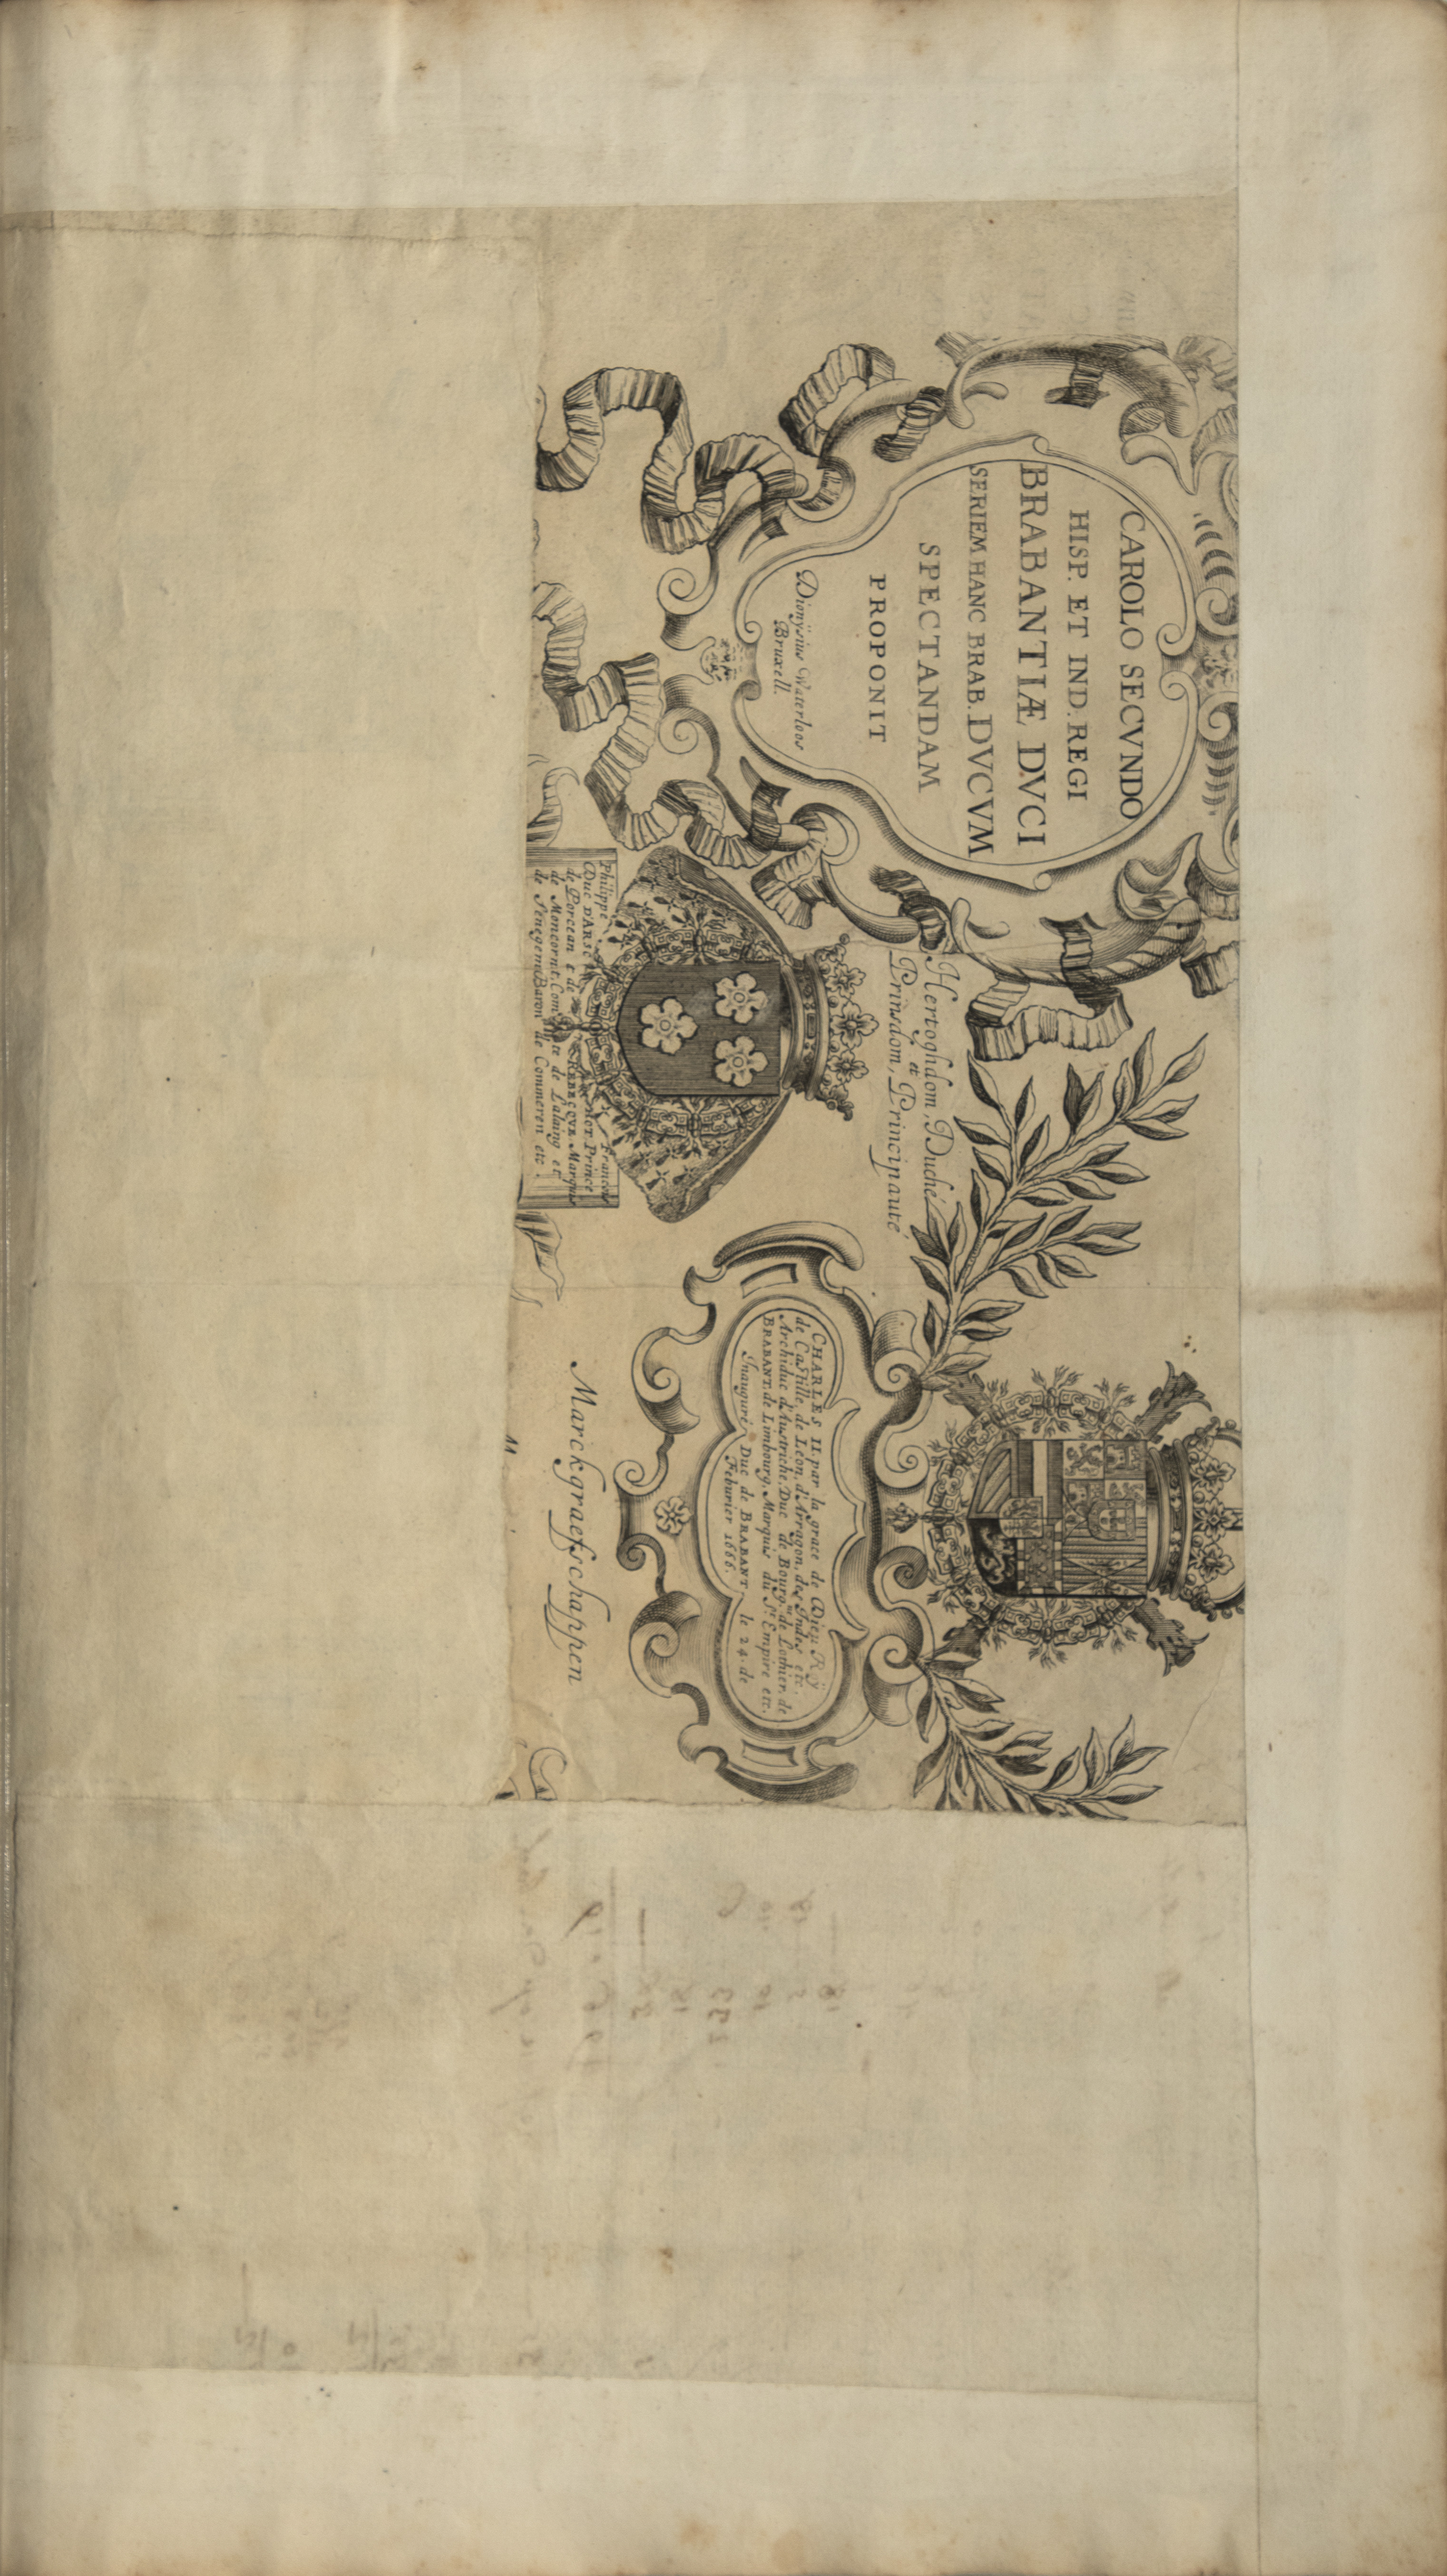 CAROLO SECVNDO
HISP. ET IND. REGI
BRABANTIÆ DVCI
SERIEM HANC BRAB. DVCVM
SPECTANDAM
PROPONIT
Dionÿsius Waterloos
Bruxell.
Hertoghdom, Duché
et
Prinsdom, Principauté
Philippe Francois
Duc D'ARSC Prince
de Porcean et de REBECQVE Marquis
de Moncornt. Com de Lalaing et
de Senegem Baron de Commeren etc.
CHARLES II. par la grace de Dieu Roÿ
de Castille, de Léon, d'Arragon, des Indes etc.
Archiduc d'Austriche, Duc de Bourg. de Lothier, de
BRABANT, de Limbourg, Marquis du St. Empire etc.
Inauguré Duc de BRABANT le 24. de
Feburier 1666.
Marckgraefschappen